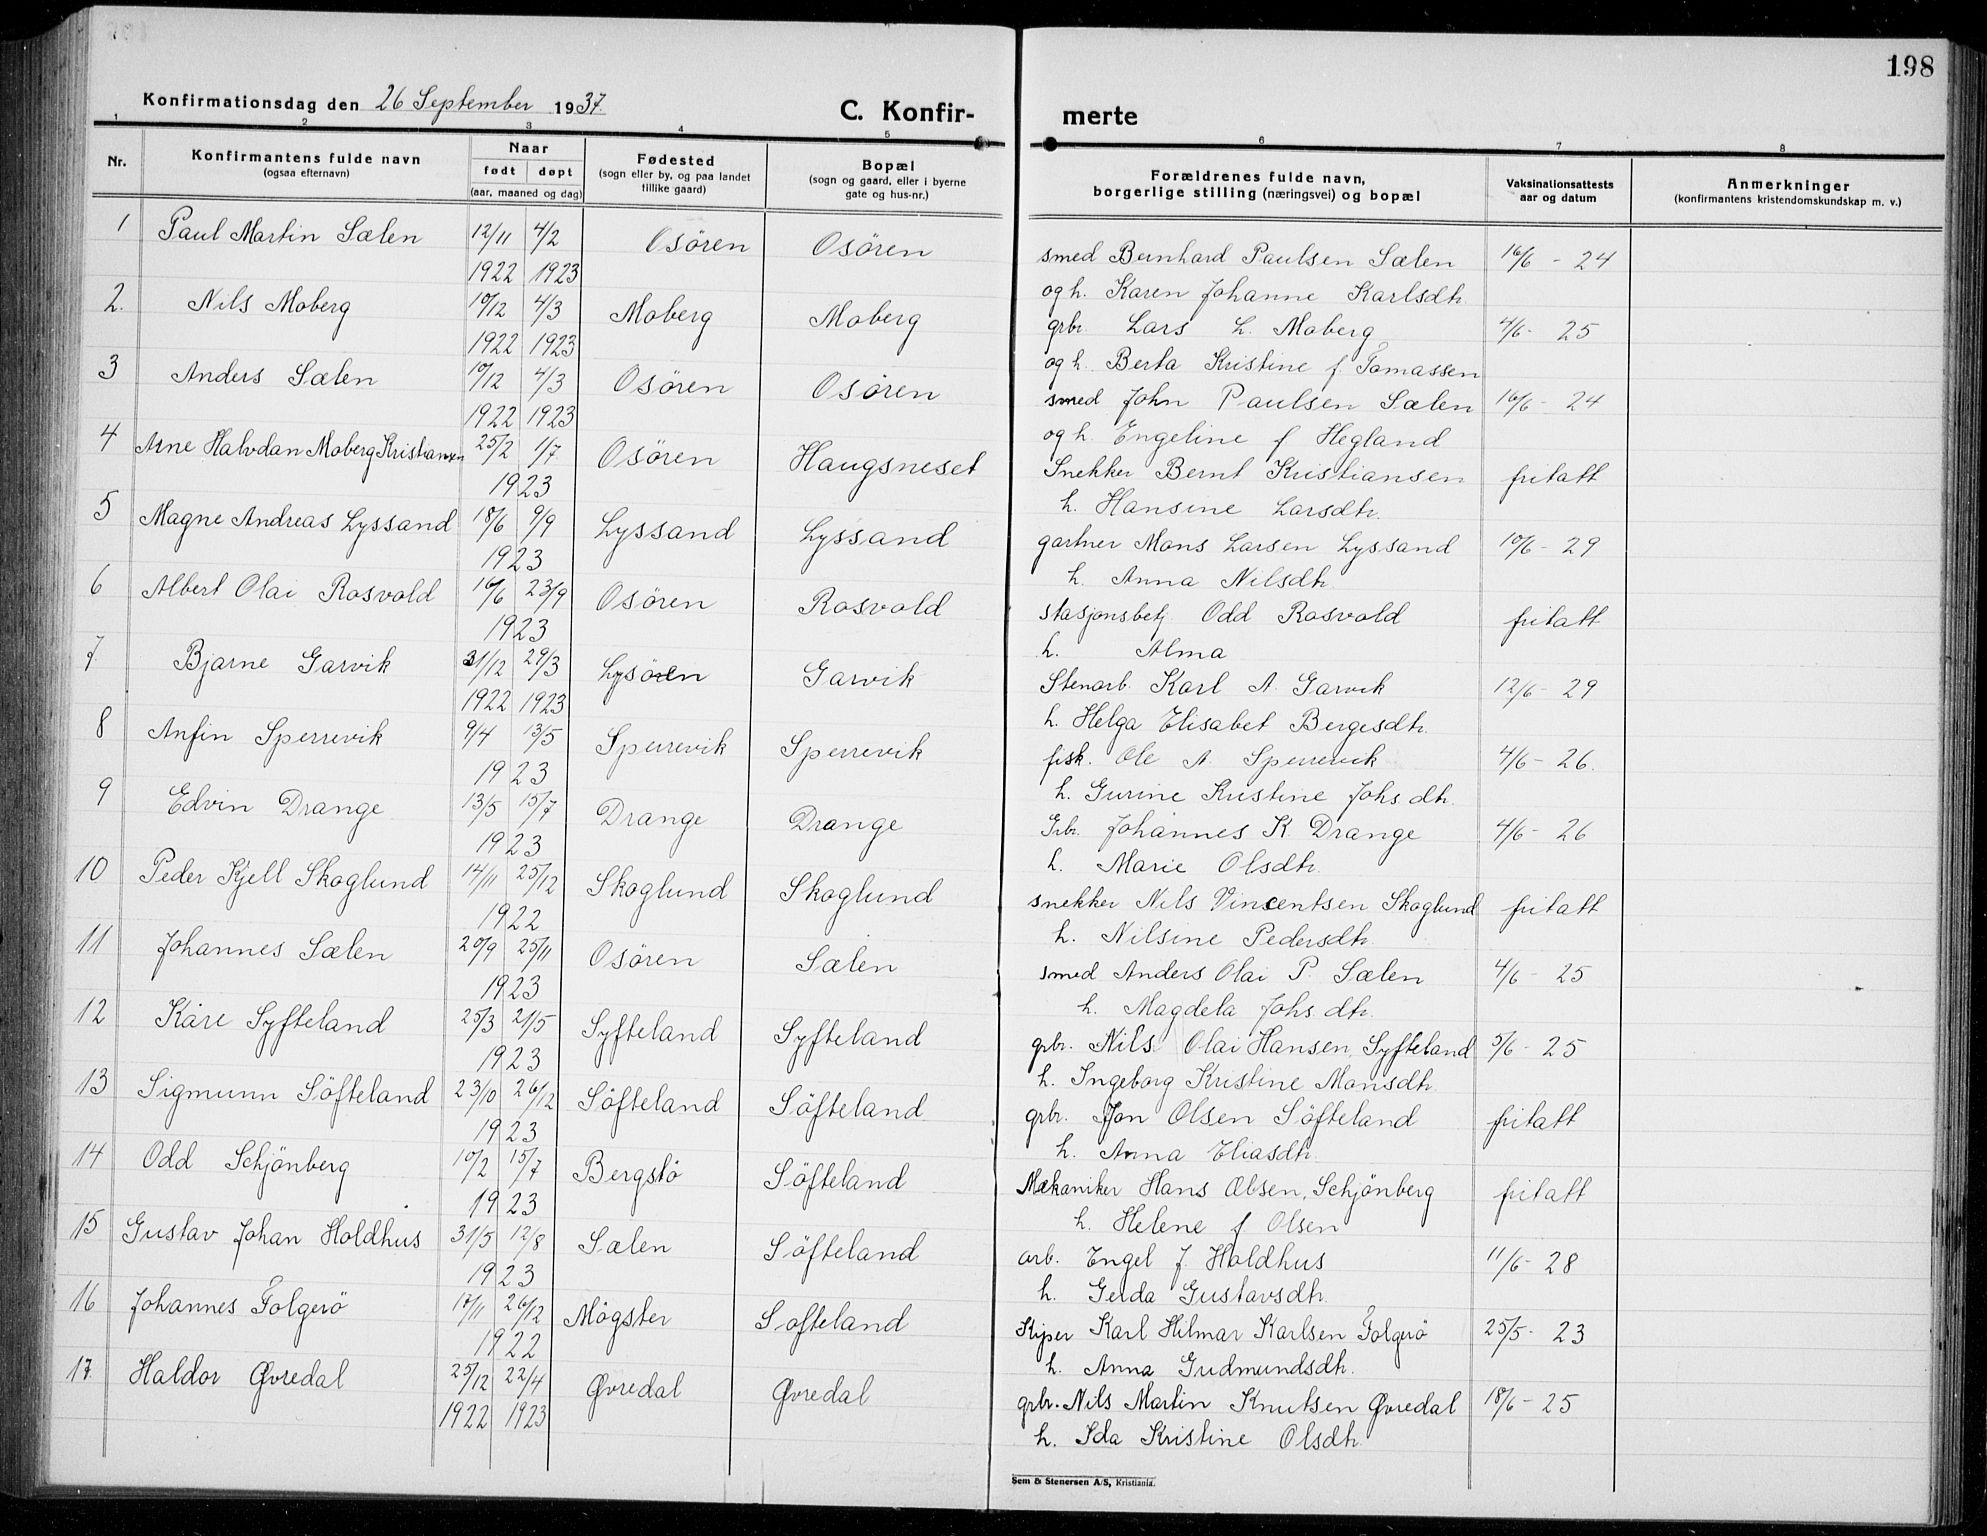 198
Konfirmationsdag den 26 September 1937.
C. Konfir-
merte
1 2 3 4 5 6 7 8
Nr.
Konfirmantens fulde navn
(ogsaa efternavn)
Naar
født døpt
(aar, maaned og dag)
Fødested
(sogn eller by, og paa landet
tillike gaard)
Bopæl
(sogn og gaard, eller i byerne
gate og hus-nr.)
Forældrenes fulde navn,
borgerlige stilling (næringsvei) og bopæl
Vaksinationsattests
aar og datum
Anmerkninger
(konfirmantens kristendomskundskap m. v.)
1 Paul Martin Sælen 12/11 4/2 Osören Osören smed Bernhard Paulsen Sælen 16/6 - 24
1922 1923 og h. Karen Johanne Karlsdtr.
2. Nils Moberg 10/12 4/3 Moberg Moberg grbr. Lars L. Moberg 4/6 - 25
1922 1923 og h. Berta Kristine f Tomassen
3 Anders Sælen 10/12 4/3 Osören Osören smed John Paulsen Sælen 16/6 - 24
1922 1923 og h. Engeline f Hegland
4 Arne Halvdan Moberg Kristiansen 25/2 1/7 Osören Haugsneset Snekker Bernt Kristiansen fritatt
1923 h. Hansine Larsdtr.
5 Magne Andreas Lyssand 18/6 9/9 Lyssand Lyssand gartner Mons Larsen Lyssand 10/6 - 29
1923 h. Anna Nilsdtr.
6 Albert Olai Rosvold 16/6 23/9 Osören Rosvold stasjonsbetj Odd Rosvold fritatt
1923 h. Alma
7 Bjarne Garvik 31/12 29/3 Lysören Garvik Stenarb. Karl A. Garvik 12/6 - 29
1922 1923 h. Helga Elisabet Bergesdtr.
8 Anfin Sperrevik 9/4 13/5 Sperrevik Sperrevik fisk. Ole A. Sperrevik 4/6 - 26.
1923 h. Gurine Kristine Johs. dtr.
9 Edvin Drange 13/5 15/7 Drange Drange Grbr. Johannes K. Drange 4/6 - 26
1923 h. Marie Olsdtr.
10 Peder Kjell Skoglund 14/11 25/12 Skoglund Skoglund snekker Nils Vincentsen Skoglund fritatt
1922 h. Nilsine Pedersdtr.
11 Johannes Sælen 20/9 25/11 Osören Sælen smed Anders Olai P. Sælen 4/6 - 25
1923 h. Magdela Johs. dtr.
12 Kåre Syfteland 25/3 21/5 Syfteland Syfteland grbr. Nils Olai Hansen Syfteland 5/6 - 25
1923 h. Ingeborg Kristine Monsdtr.
13 Sigmunn Söfteland 23/10 26/12 Söfteland Söfteland grbr. Jon Olsen Söfteland fritatt
1923 h. Anna Eliasdtr.
14 Odd Schjönberg 10/2 15/7 Bergstö Söfteland Mekaniker Hans Olsen Schjönberg fritatt
1923 h. Helene f Olsen
15 Gustav Johan Holdhus 31/5 12/8 Sælen Söfteland arb. Engel J. Holdhus 11/6 - 28
1923 h. Gerda Gustavsdtr.
16 Johannes Folgerö 17/11 26/12 Mögster Softeland Skiper Karl Hilmar Karlsen Folgerö 25/5 - 23
1922 h. Anna Gudmundsdtr.
17 Haldor Øvredal 25/12 22/4 Øvredal Øvredal grbr. Nils Martin Knutsen Øvredal 18/6 - 25
1922 1923 h. Ida Kristine Olsdtr.
Sem & Stenersen A/S, Kristiania.